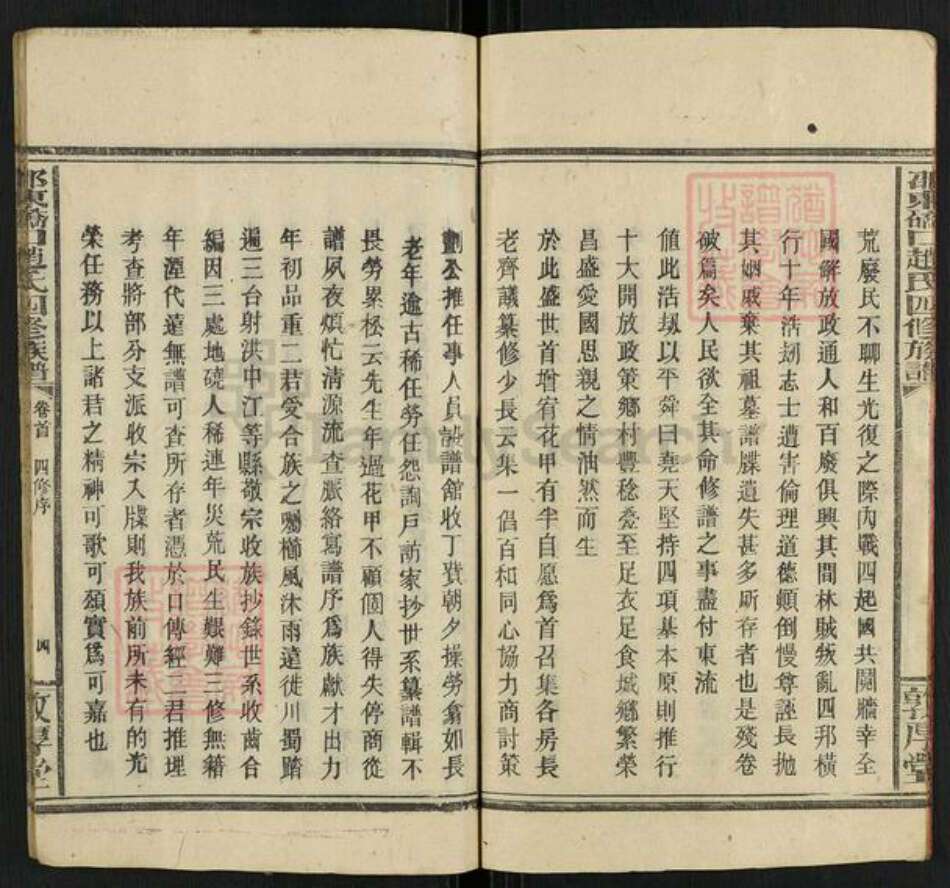 邵東僑口趙氏四修族譜
敦厚堂
荒廢民不聊生光復之際內戰四起國共鬩牆幸全
國解放政通人和百廢俱興其間林賊叛亂四邦橫
行十年浩刼志士遭害倫理道德頓倒慢尊誣長拋
其姻戚棄其祖墓譜牒遺失甚多所存者也是殘卷
破篇矣人民欲全其命修譜之事盡付東流
值此浩刼以平舜日堯天堅持四項基本原則推行
十大開放政策鄉村豐稔麥至足衣足食城鄉繁榮
昌盛愛國思親之情油然而生
於此盛世首增宥花甲有半自愿為首召集各房長
老齊議纂修少長云集一倡百和同心協力商討策
劃公推任事人員設譜舘收丁費朝夕操勞翕如長
老年逾古稀任勞任怨詢戶訪家抄世系纂譜輯不
畏勞累松云先生年過花甲不顧個人得失停商從
譜夙夜煩忙清源流查脈絡寫譜序為族獻才出力
年初品重二君受合族之囑櫛風沐雨遠徙川蜀踏
遍三台射洪中江等縣敬宗收族抄錄世系收齒合
編因三處地磽人稀連年災荒民生艱難三修無藉
年湮代遠無譜可查所存者憑於口傳經二君推埋
考查將部分支派收宗入牒則我族前所未有的光
榮任務以上諸君之精神可歌可頌實為可嘉也
邵東僑口趙氏四修族譜
卷首
四修序
四
敦厚堂
FamilySearch